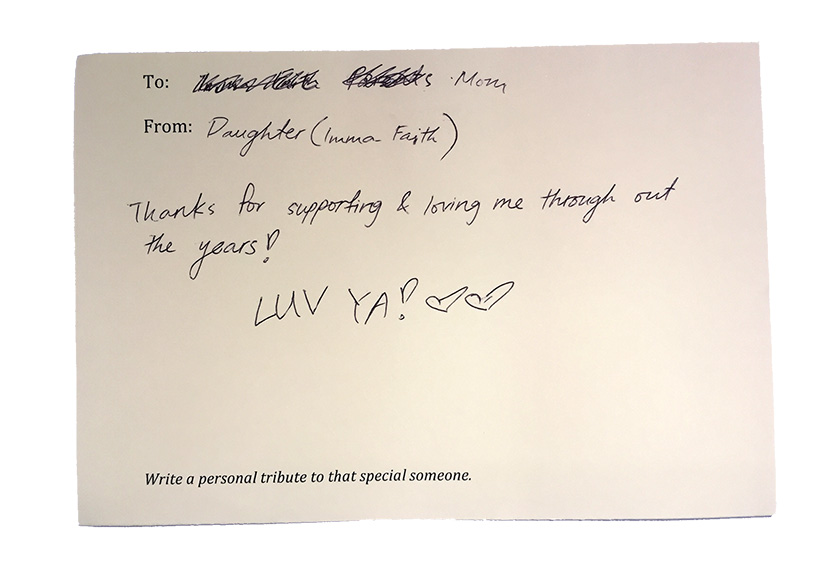 To: Mom
From: Daughter (Imma Faith)
Thanks for supporting & loving me through out
the years!
LUV YA! ♡♡
Write a personal tribute to that special someone.